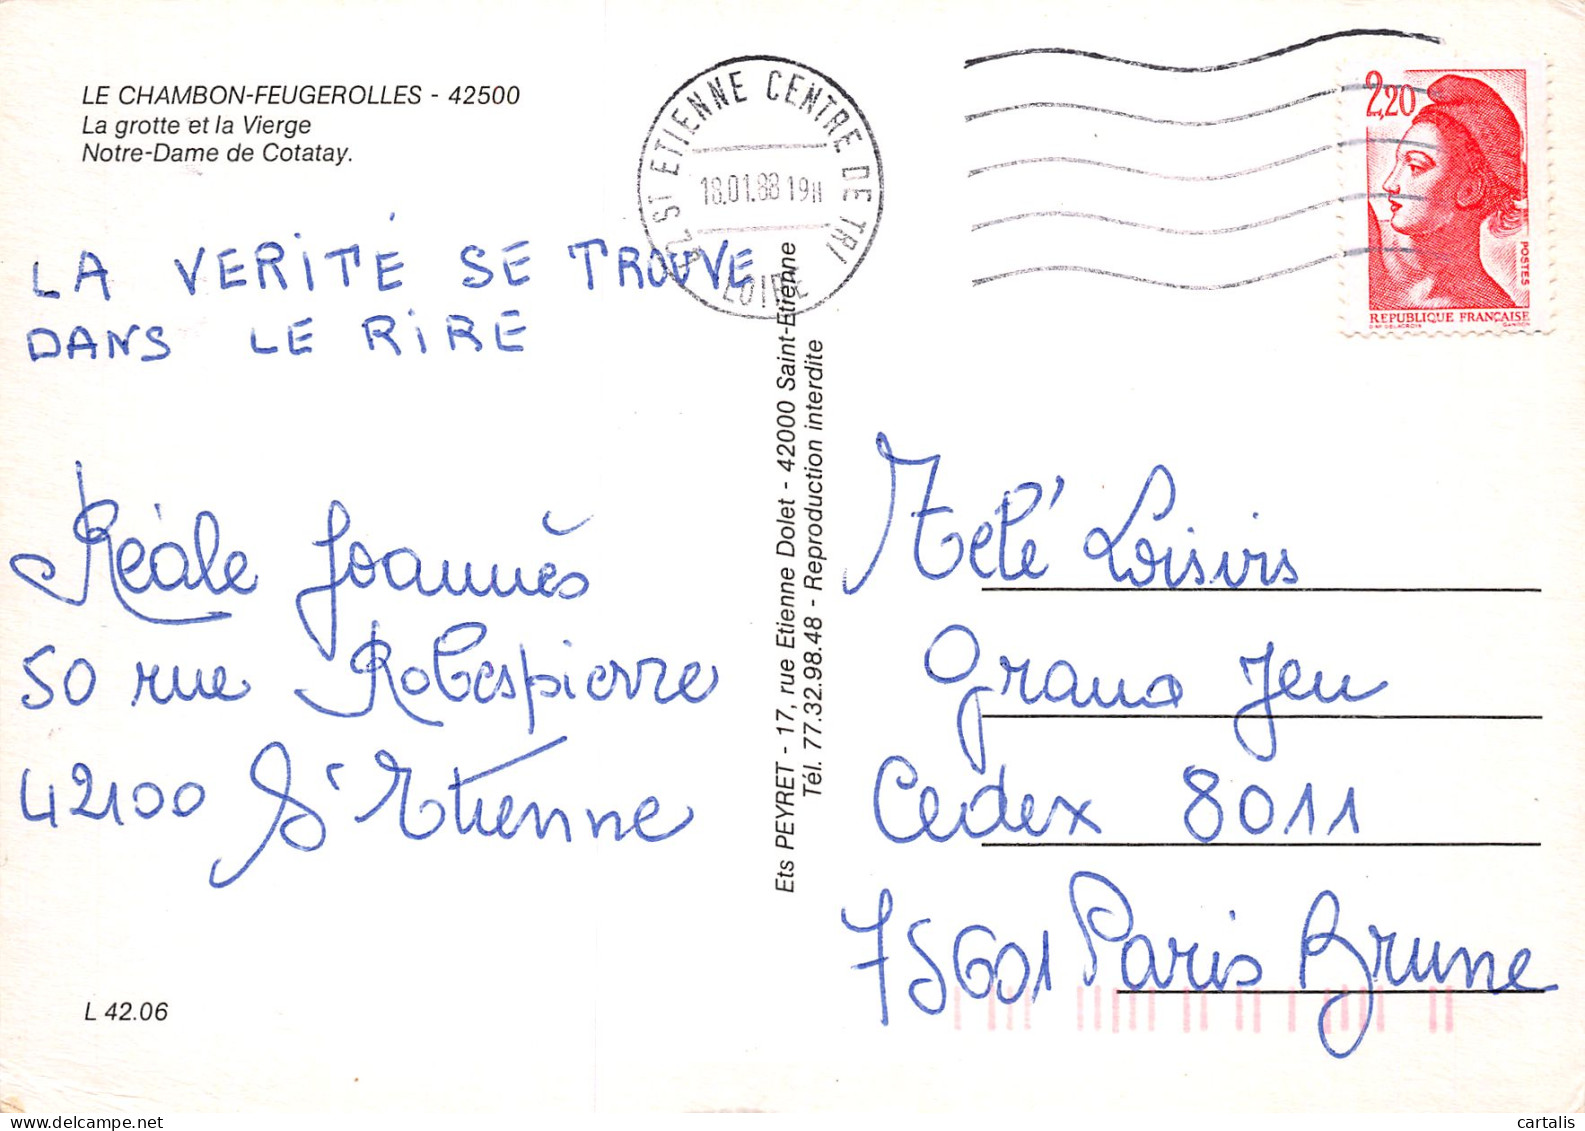 LE CHAMBON-FEUGEROLLES - 42500
La grotte et la Vierge
Notre-Dame de Cotatay.
LA VERITÉ SE TROUVE
DANS LE RIRE
Réale Joannès
50 rue Robespierre
42100 St Etienne
L 42.06
Ets PEYRET - 17, rue Etienne Dolet - 42000 Saint-Etienne
Tél. 77.32.98.48 - Reproduction interdite
ST ETIENNE CENTRE DE TRI
18.01.88 19H
LOIRE
2,20
POSTES
REPUBLIQUE FRANÇAISE
D'AP. DELACROIX GANDON
Télé Loisirs
Grand Jeu
Cedex 8011
75601 Paris Brune
cartalis